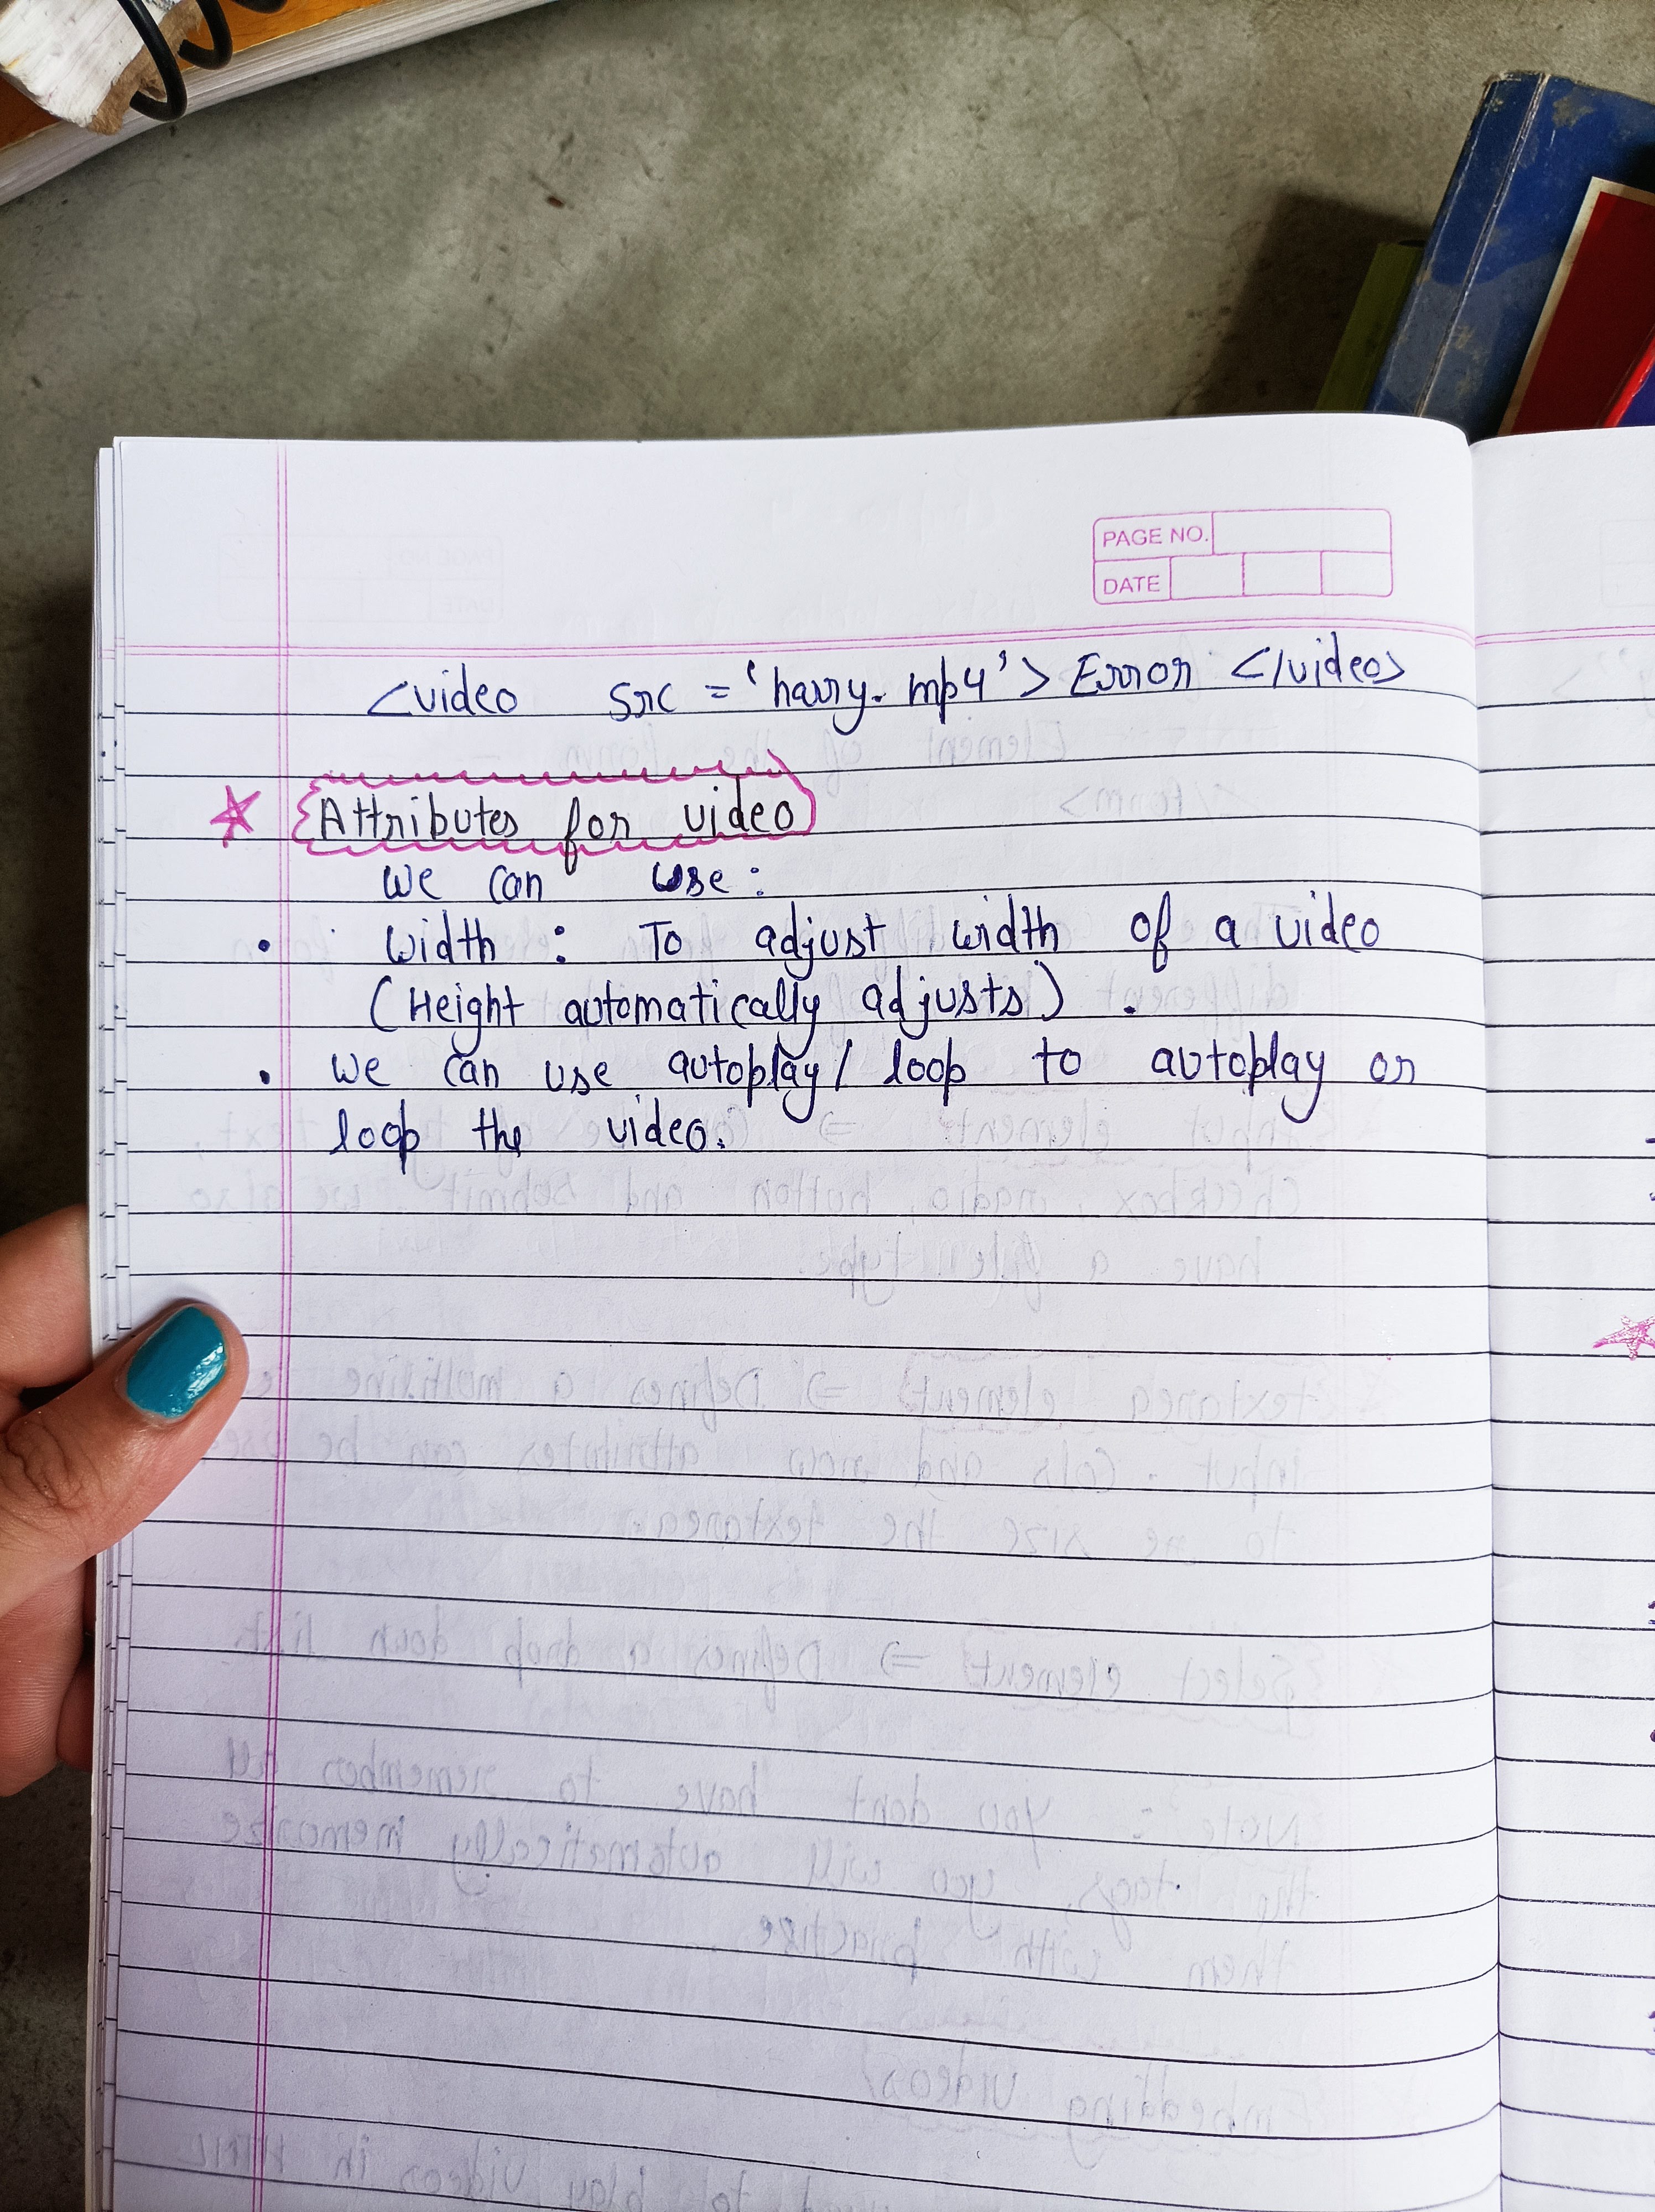 PAGE NO.
DATE
<video src = 'harry.mp4'> Error </video>
Attributes for video
we can use:
• width : To adjust width of a video
(Height automatically adjusts).
• we can use autoplay/ loop to autoplay or
loop the video.